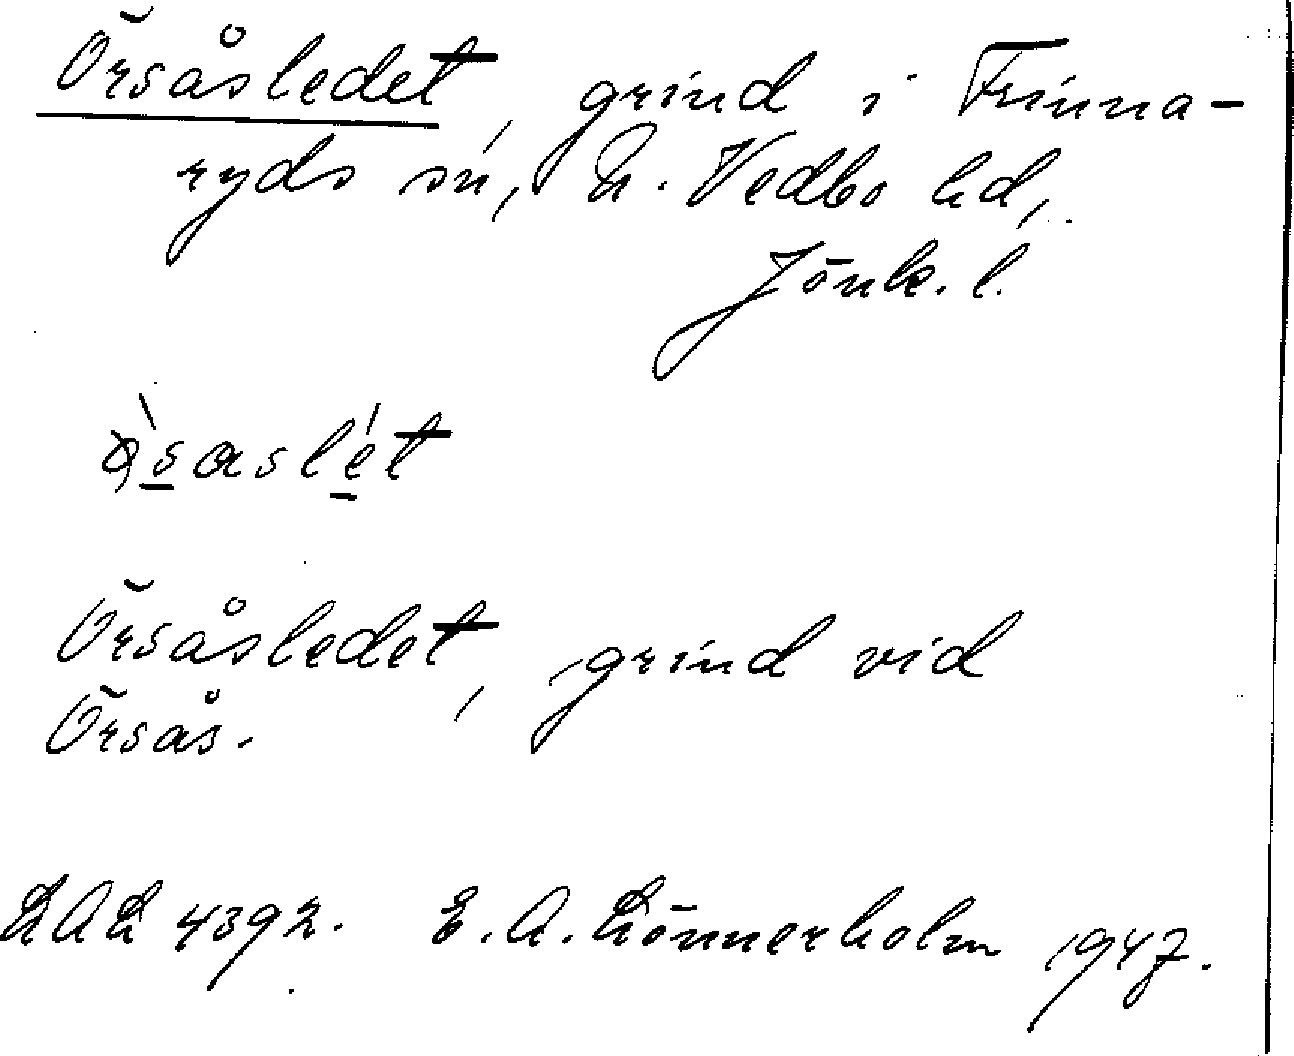 Örsåsledet, grind i Frinna-
ryds sn, N. Vedbo hd,
Jönk. l.
Örsåsledet, grind vid
Örsås.
LAL 4392. E. A. Lönnerholm 1947.